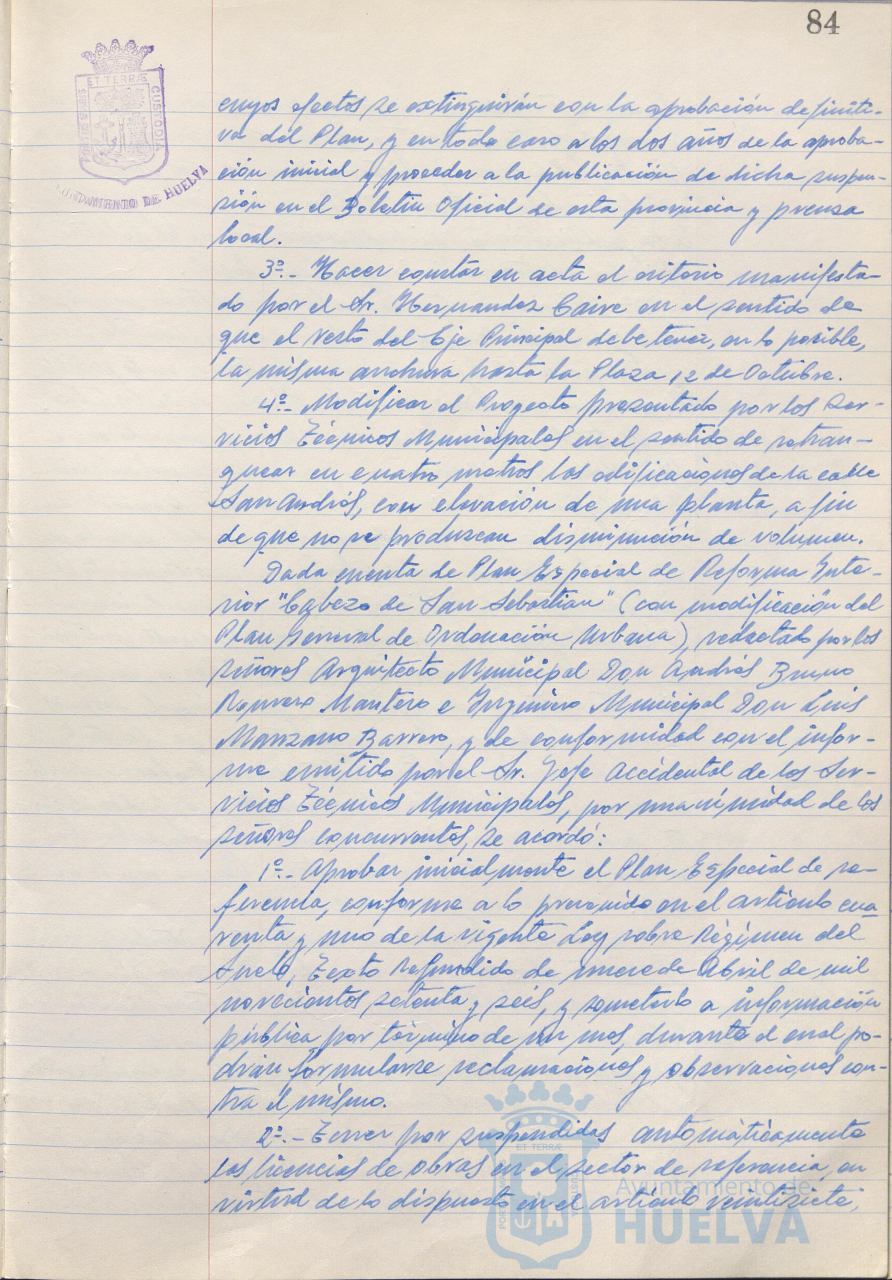 84
ET TERRÆ
CUSTODIA
AYUNTAMIENTO DE HUELVA
cuyos efectos se extinguirán con la aprobación definiti-
va del Plan, y en todo caso a los dos años de la aproba-
ción inicial y proceder a la publicación de dicha suspen-
sión en el Boletín Oficial de esta provincia y prensa
local.
3º.- Hacer constar en acta el criterio manifesta-
do por el Sr. Hernandez Caire en el sentido de
que el resto del Eje Principal debe tener, en lo posible,
la misma anchura hasta la Plaza 12 de Octubre.
4º.- Modificar el Proyecto presentado por los Ser-
vicios Técnicos Municipales en el sentido de retran-
quear en cuatro metros las edificaciones de la calle
San Andrés, con elevación de una planta, a fin
de que no se produzcan disminución de volumen.
Dada cuenta de Plan Especial de Reforma Inte-
rior "Cabezo de San Sebastian" (con modificación del
Plan General de Ordenación Urbana), redactado por los
señores Arquitecto Municipal Don Andrés Bruno
Romero Mantero e Ingeniero Municipal Don Luis
Manzano Barrero, y de conformidad con el infor-
me emitido por el Sr. Jefe Accidental de los Ser-
vicios Técnicos Municipales, por unanimidad de los
señores concurrentes, se acordó:
1º.- Aprobar inicialmente el Plan Especial de re-
ferencia, conforme a lo prevenido en el artículo cua
renta y uno de la vigente Ley sobre Régimen del
Suelo, Texto Refundido de nueve de Abril de mil
novecientos setenta y seis, y someterlo a información
pública por término de un mes, durante el cual po-
drán formularse reclamaciones y observaciones con-
tra el mismo.
2º.- Tener por suspendidas automáticamente
las licencias de obras en el sector de referencia, en
virtud de lo dispuesto en el artículo veintisiete,
ET TERRÆ
Ayuntamiento de
HUELVA